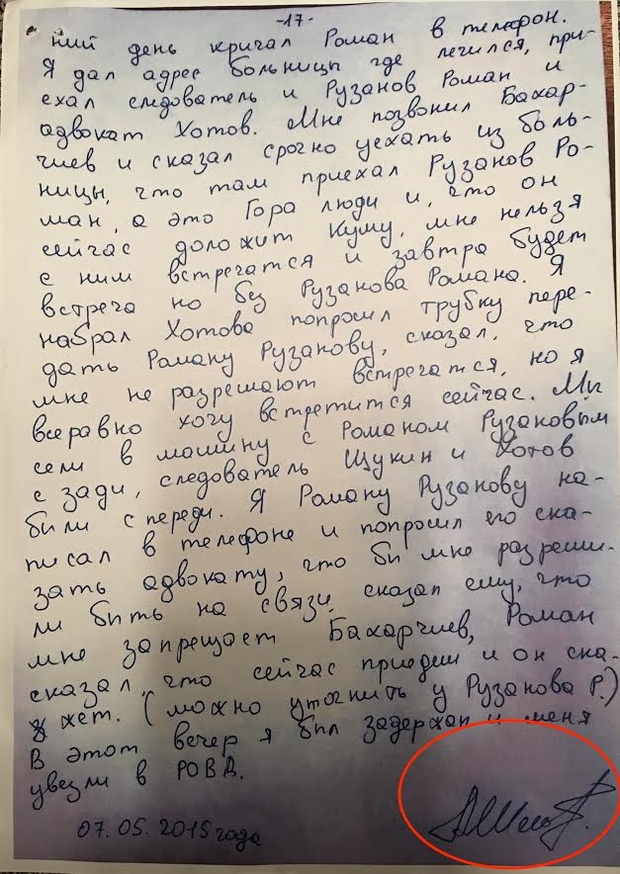 -17-
ний день кричал Роман в телефон.
Я дал адрес больницы где лечился, при-
ехал следователь и Рузанов Роман и
адвокат Хотов. Мне позвонил Бахар-
чиев и сказал срочно уехать из боль-
ницы, что там приехал Рузанов Ро-
ман, а это Гора люди и, что он
сейчас доложит Куму, мне нельзя
с ним встречатся и завтра будет
встреча но без Рузанова Романа. Я
набрал Хотова попросил трубку пере-
дать Роману Рузанову, сказал, что
мне не разрешают встречатся, но я
всеравно хочу встретится сейчас. Мы
сели в машину с Романом Рузановым
с зади, следователь Щукин и Хотов
были спереди. Я Роману Рузанову на-
писал в телефоне и попросил его ска-
зать адвокату, что би мне разреши-
ли бить на связи, сказал ему, что
мне запрещает Бахарчиев, Роман
сказал, что сейчас приедем и он ска-
жет. (можно уточнить у Рузанова Р.)
В этот вечер я был задержан и меня
увезли в РОВД.
07.05.2015 года